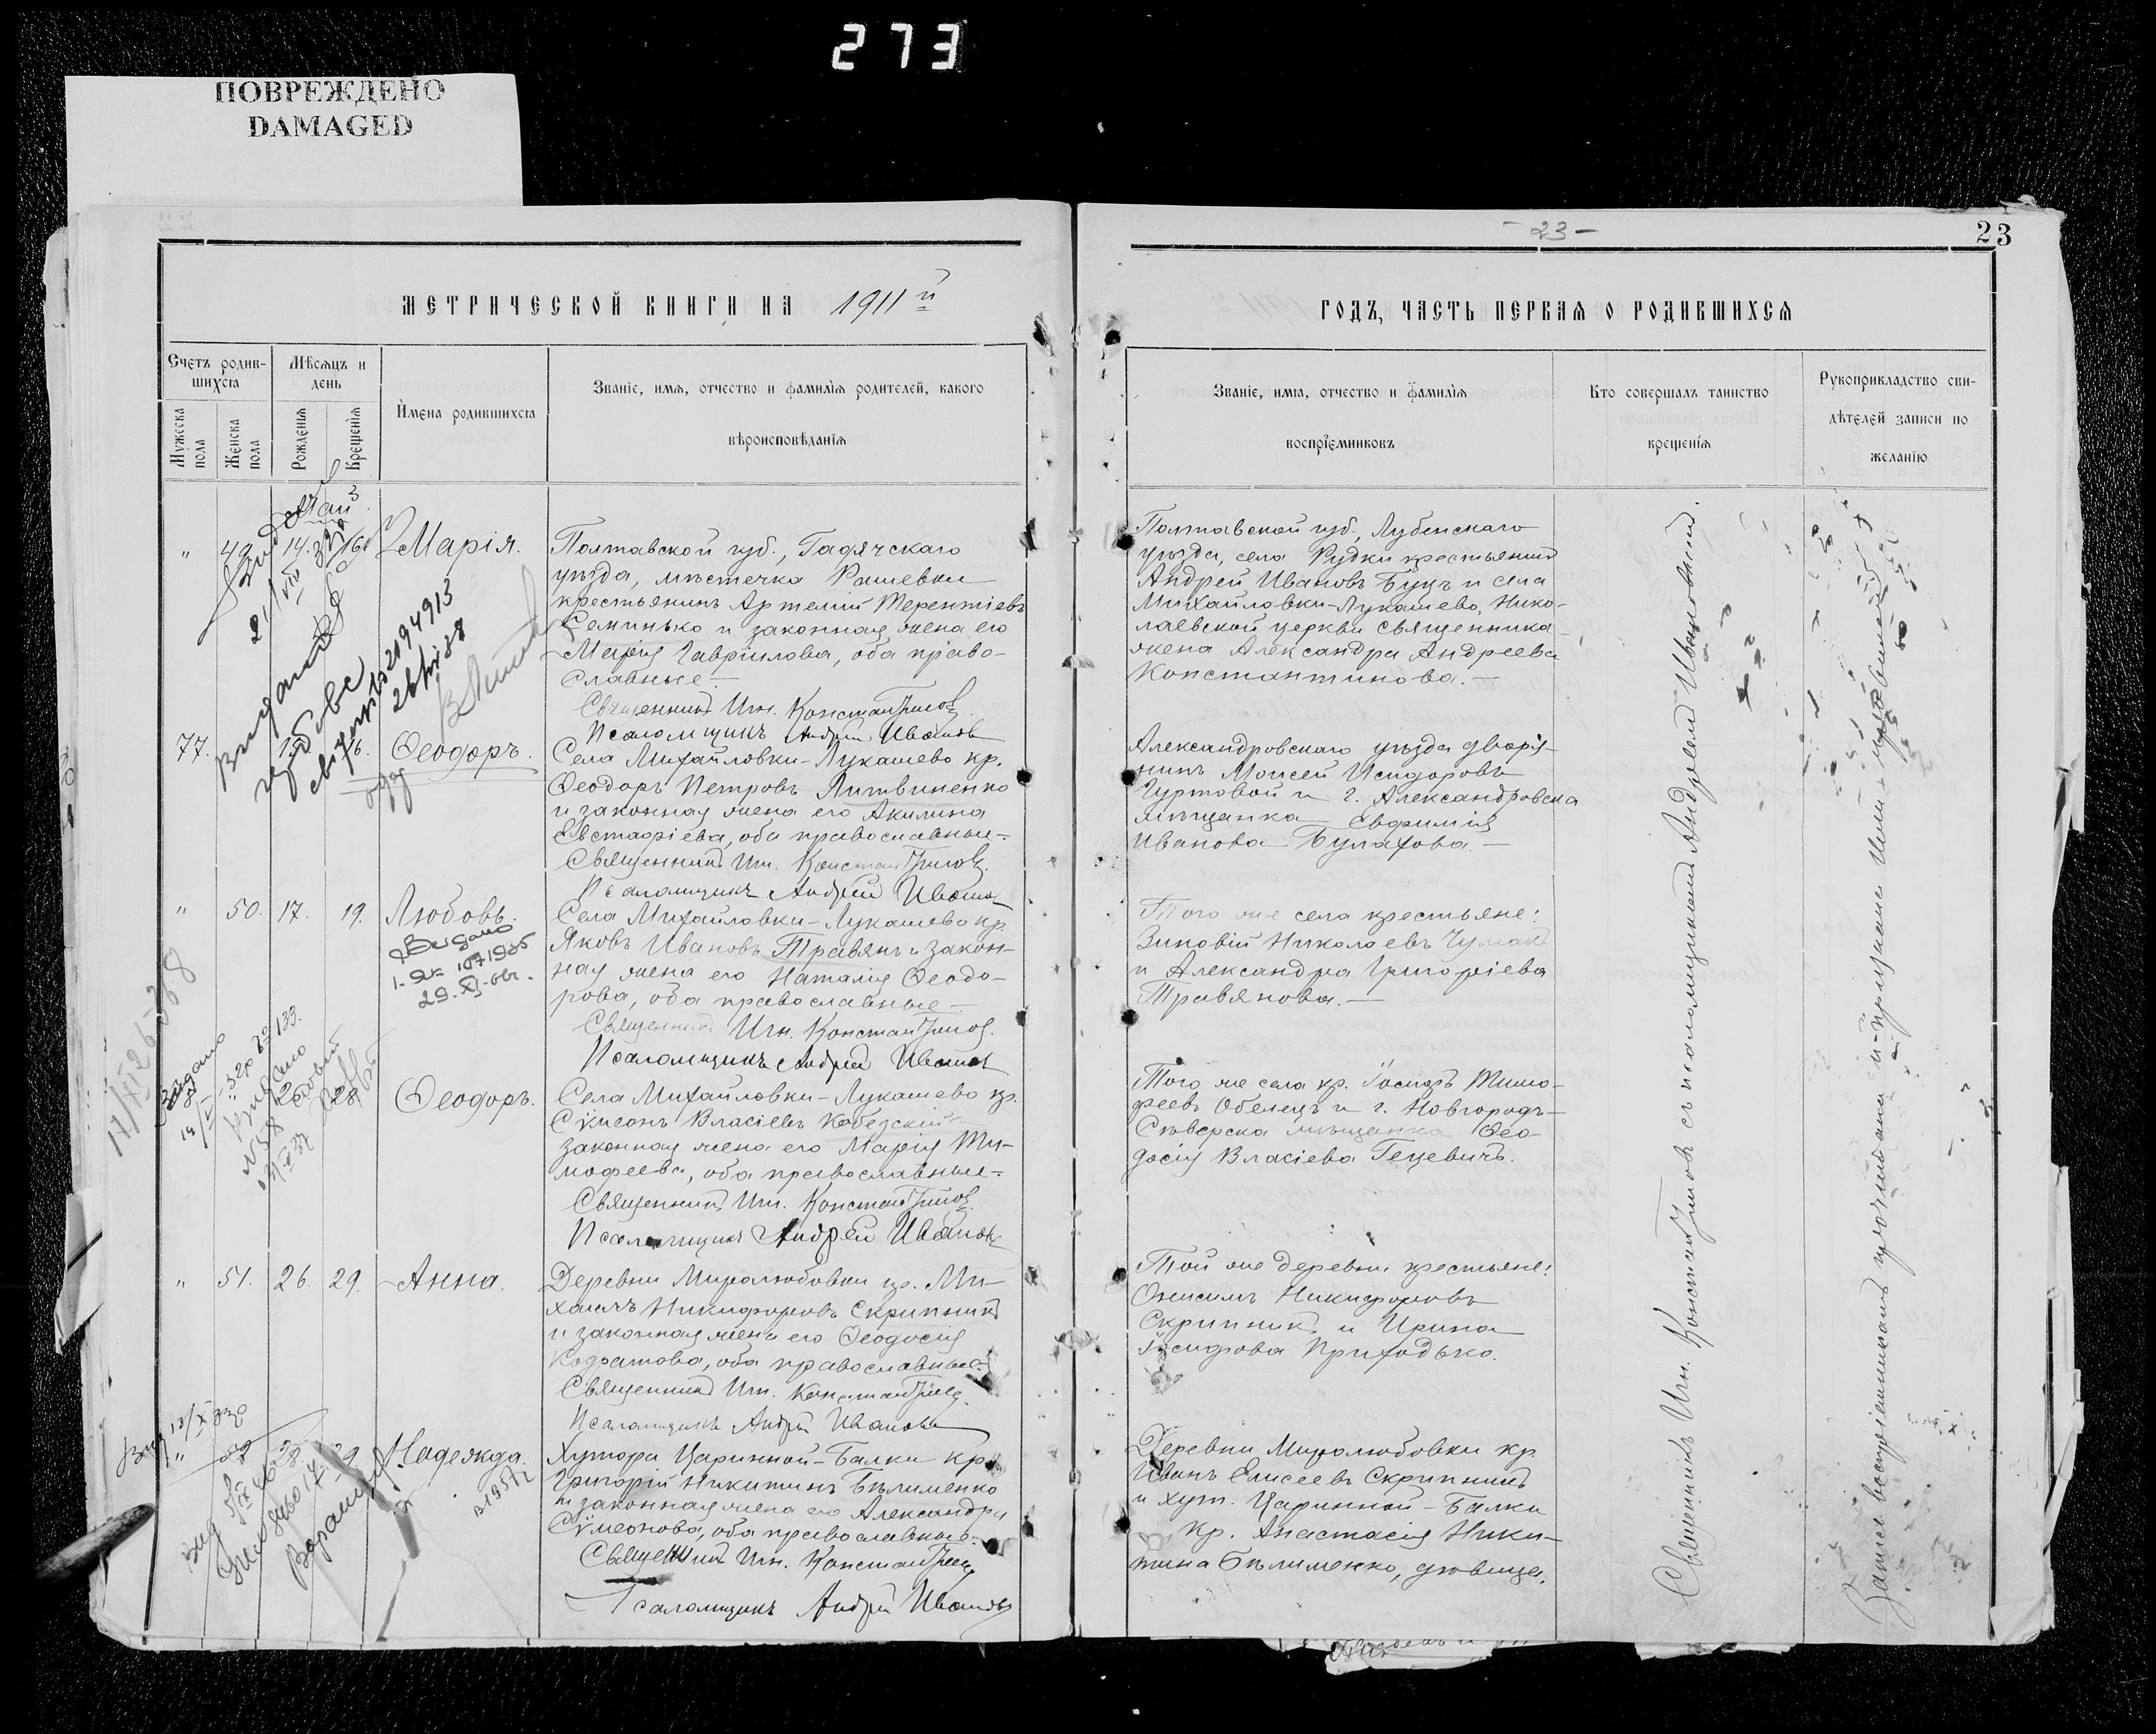 273
ПОВРЕЖДЕНО
DAMAGED
- 23 -
23
МЕТРИЧЕСКОЙ КНИГИ НА 1911 й
ГОДЪ, ЧАСТЬ ПЕРВАЯ О РОДИВШИХСЯ
Счетъ родив-
шихся
Мужеска
пола
Женска
пола
Мѣсяцъ и
день
Рожденія
Крещенія
Имена родившихся
Званіе, имя, отчество и фамилія родителей, какого
вѣроисповѣданія
Званіе, имя, отчество и фамилія
воспріемниковъ
Кто совершалъ таинство
крещенія
Рукоприкладство сви-
дѣтелей записи по
желанію
Май
" 49 14. 16. Марія.
Полтавской губ., Гадячскаго
уѣзда, мѣстечка Рашевки
крестьянинъ Артемій Терентіевъ
Семинько и законная жена его
Марія Гавріилова, оба право-
славные.—
Священникъ Игн. Константиновъ.
Псаломщикъ Андрей Ивановъ
Полтавской губ., Лубенскаго
уѣзда, села Рудки крестьянинъ
Андрей Ивановъ Буцъ и села
Михайловки-Лукашево, Нико-
лаевской церкви священника
жена Александра Андреева
Константинова.—
77. 15 16. Ѳеодоръ.
Села Михайловки-Лукашево кр.
Ѳеодоръ Петровъ Литвиненко
и законная жена его Акилина
Евстафіева, оба православные.=
Священникъ Игн. Константиновъ.
Псаломщикъ Андрей Ивановъ
Александровскаго уѣзда дворя-
нинъ Моисей Исидоровъ
Гуртовой и г. Александровска
мѣщанка Евфимія
Иванова Булахова.—
" 50. 17. 19. Любовь.
1071935
Села Михайловки-Лукашево кр.
Яковъ Ивановъ Травянъ и закон-
ная жена его Наталія Ѳеодо-
рова, оба православные—
Священникъ Игн. Константиновъ.
Псаломщикъ Андрей Ивановъ
Того же села крестьяне:
Зиновій Николаевъ Чумакъ
и Александра Григоріева
Травянова.—
28. Ѳеодоръ.
Села Михайловки-Лукашево кр.
Сѵмеонъ Власіевъ Кобезскій и
законная жена его Марія Ти-
мофеева, оба православные=
Священникъ Игн. Константиновъ.
Псаломщикъ Андрей Ивановъ
Того же села кр. Іосифъ Тимо-
феевъ Обелецъ и г. Новгородъ-
Сѣверска мѣщанка Ѳео-
досія Власіева Гецевичъ.
" 51. 26. 29. Анна.
Деревни Миролюбовки кр. Ми-
хаилъ Никифоровъ Скрипникъ
и законная жена его Ѳеодосія
Кодратова, оба православные
Священникъ Игн. Константиновъ.
Псаломщикъ Андрей Ивановъ
Той же деревни крестьяне:
Онисимъ Никифоровъ
Скрипникъ и Ирина
Іосифова Приходько.
" 28. 29 Надежда.
Хутора Царинной-Балки кр.
Григорій Никитинъ Бѣлименко
и законная жена его Александра
Сѵмеонова, оба православные.
Священникъ Игн. Константиновъ
Псаломщикъ Андрей Ивановъ
Деревни Миролюбовки кр.
Иванъ Елисеевъ Скрипникъ
и хут. Царинной-Балки
кр. Анастасія Ники-
тина Бѣлименко, дѣвица.
Священникъ Игн. Константиновъ съ псаломщикомъ Андреемъ Ивановымъ.